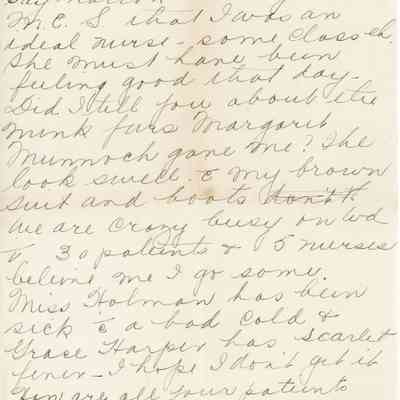 M.E.S that I was an
ideal nurse - some class eh.
She must have been
feeling good that day -
Did I tell you about the
mink furs Margaret
Munnoch gave me? The
look swell c̄ my brown
suit and boots don't
we are crazy busy on wd
v. 30 patients & 5 nurses
believe me I go some.
Miss Holman has been
sick c̄ a bad cold &
Grace Harper has scarlet
fever - I hope I don't get it
How are all your patients